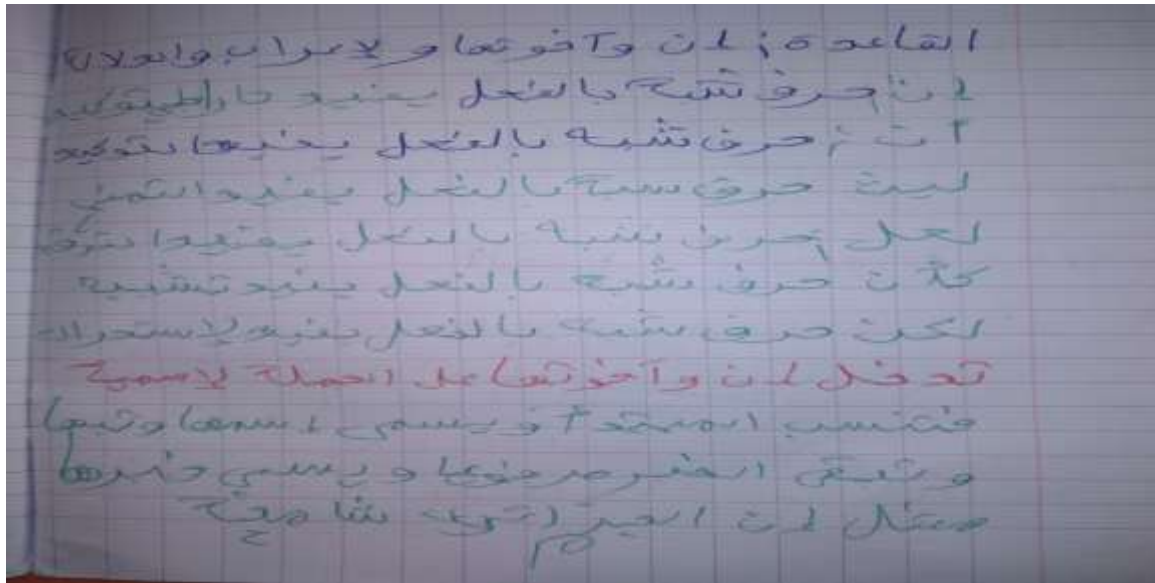 القاعدة : إن وآخوتها ولاعراب والدلالة
إن حرف شبه بالفعل يفيد
أن : حرف شبه بالفعل يفيد التوكيد
ليت حرف شبه بالفعل يفيد التمني
لعل حرف شبه بالفعل يفيد
كأن حرف شبه بالفعل يفيد تشبيه
لكن حرف شبه بالفعل يفيد لاستدراك
تدخل إن وآخوتها على الجملة لاسمية
فتنسب المبتدأ ويسمى اسمها
وتبقى الخبر مرفوعا ويسمى خبرها
مثل إن شامخة